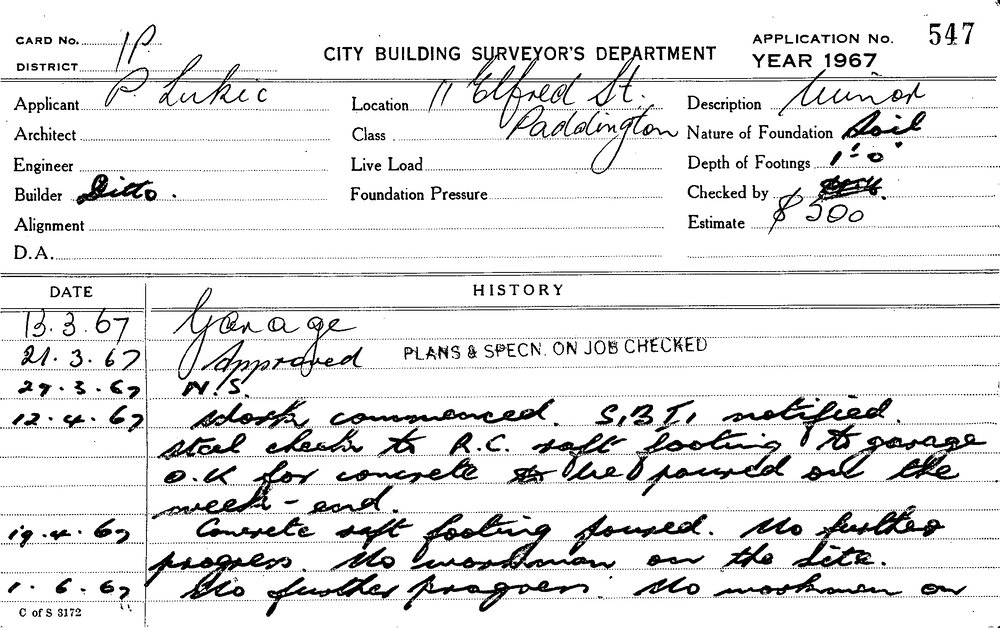 CARD No. 1P
DISTRICT
CITY BUILDING SURVEYOR'S DEPARTMENT
APPLICATION No. 547
YEAR 1967
Applicant P. Lukic
Location 11 Elfred St.
Description Minor
Architect
Class Paddington
Nature of Foundation Soil
Engineer
Live Load
Depth of Footings 1'-0"
Builder Ditto.
Foundation Pressure
Checked by
Alignment
Estimate $500
D.A.
DATE HISTORY
13.3.67 Garage
21.3.67 Approved PLANS & SPECN. ON JOB CHECKED
29.3.67 N.S.
12.4.67 Work commenced. S.B.I. notified.
steel check to R.C. raft footing to garage
O.K for concrete to be poured on the
week-end.
19.4.67 Concrete raft footing poured. No further
progress. No workman on the site.
1.6.67 No further progress. No workmen on
C of S 3172